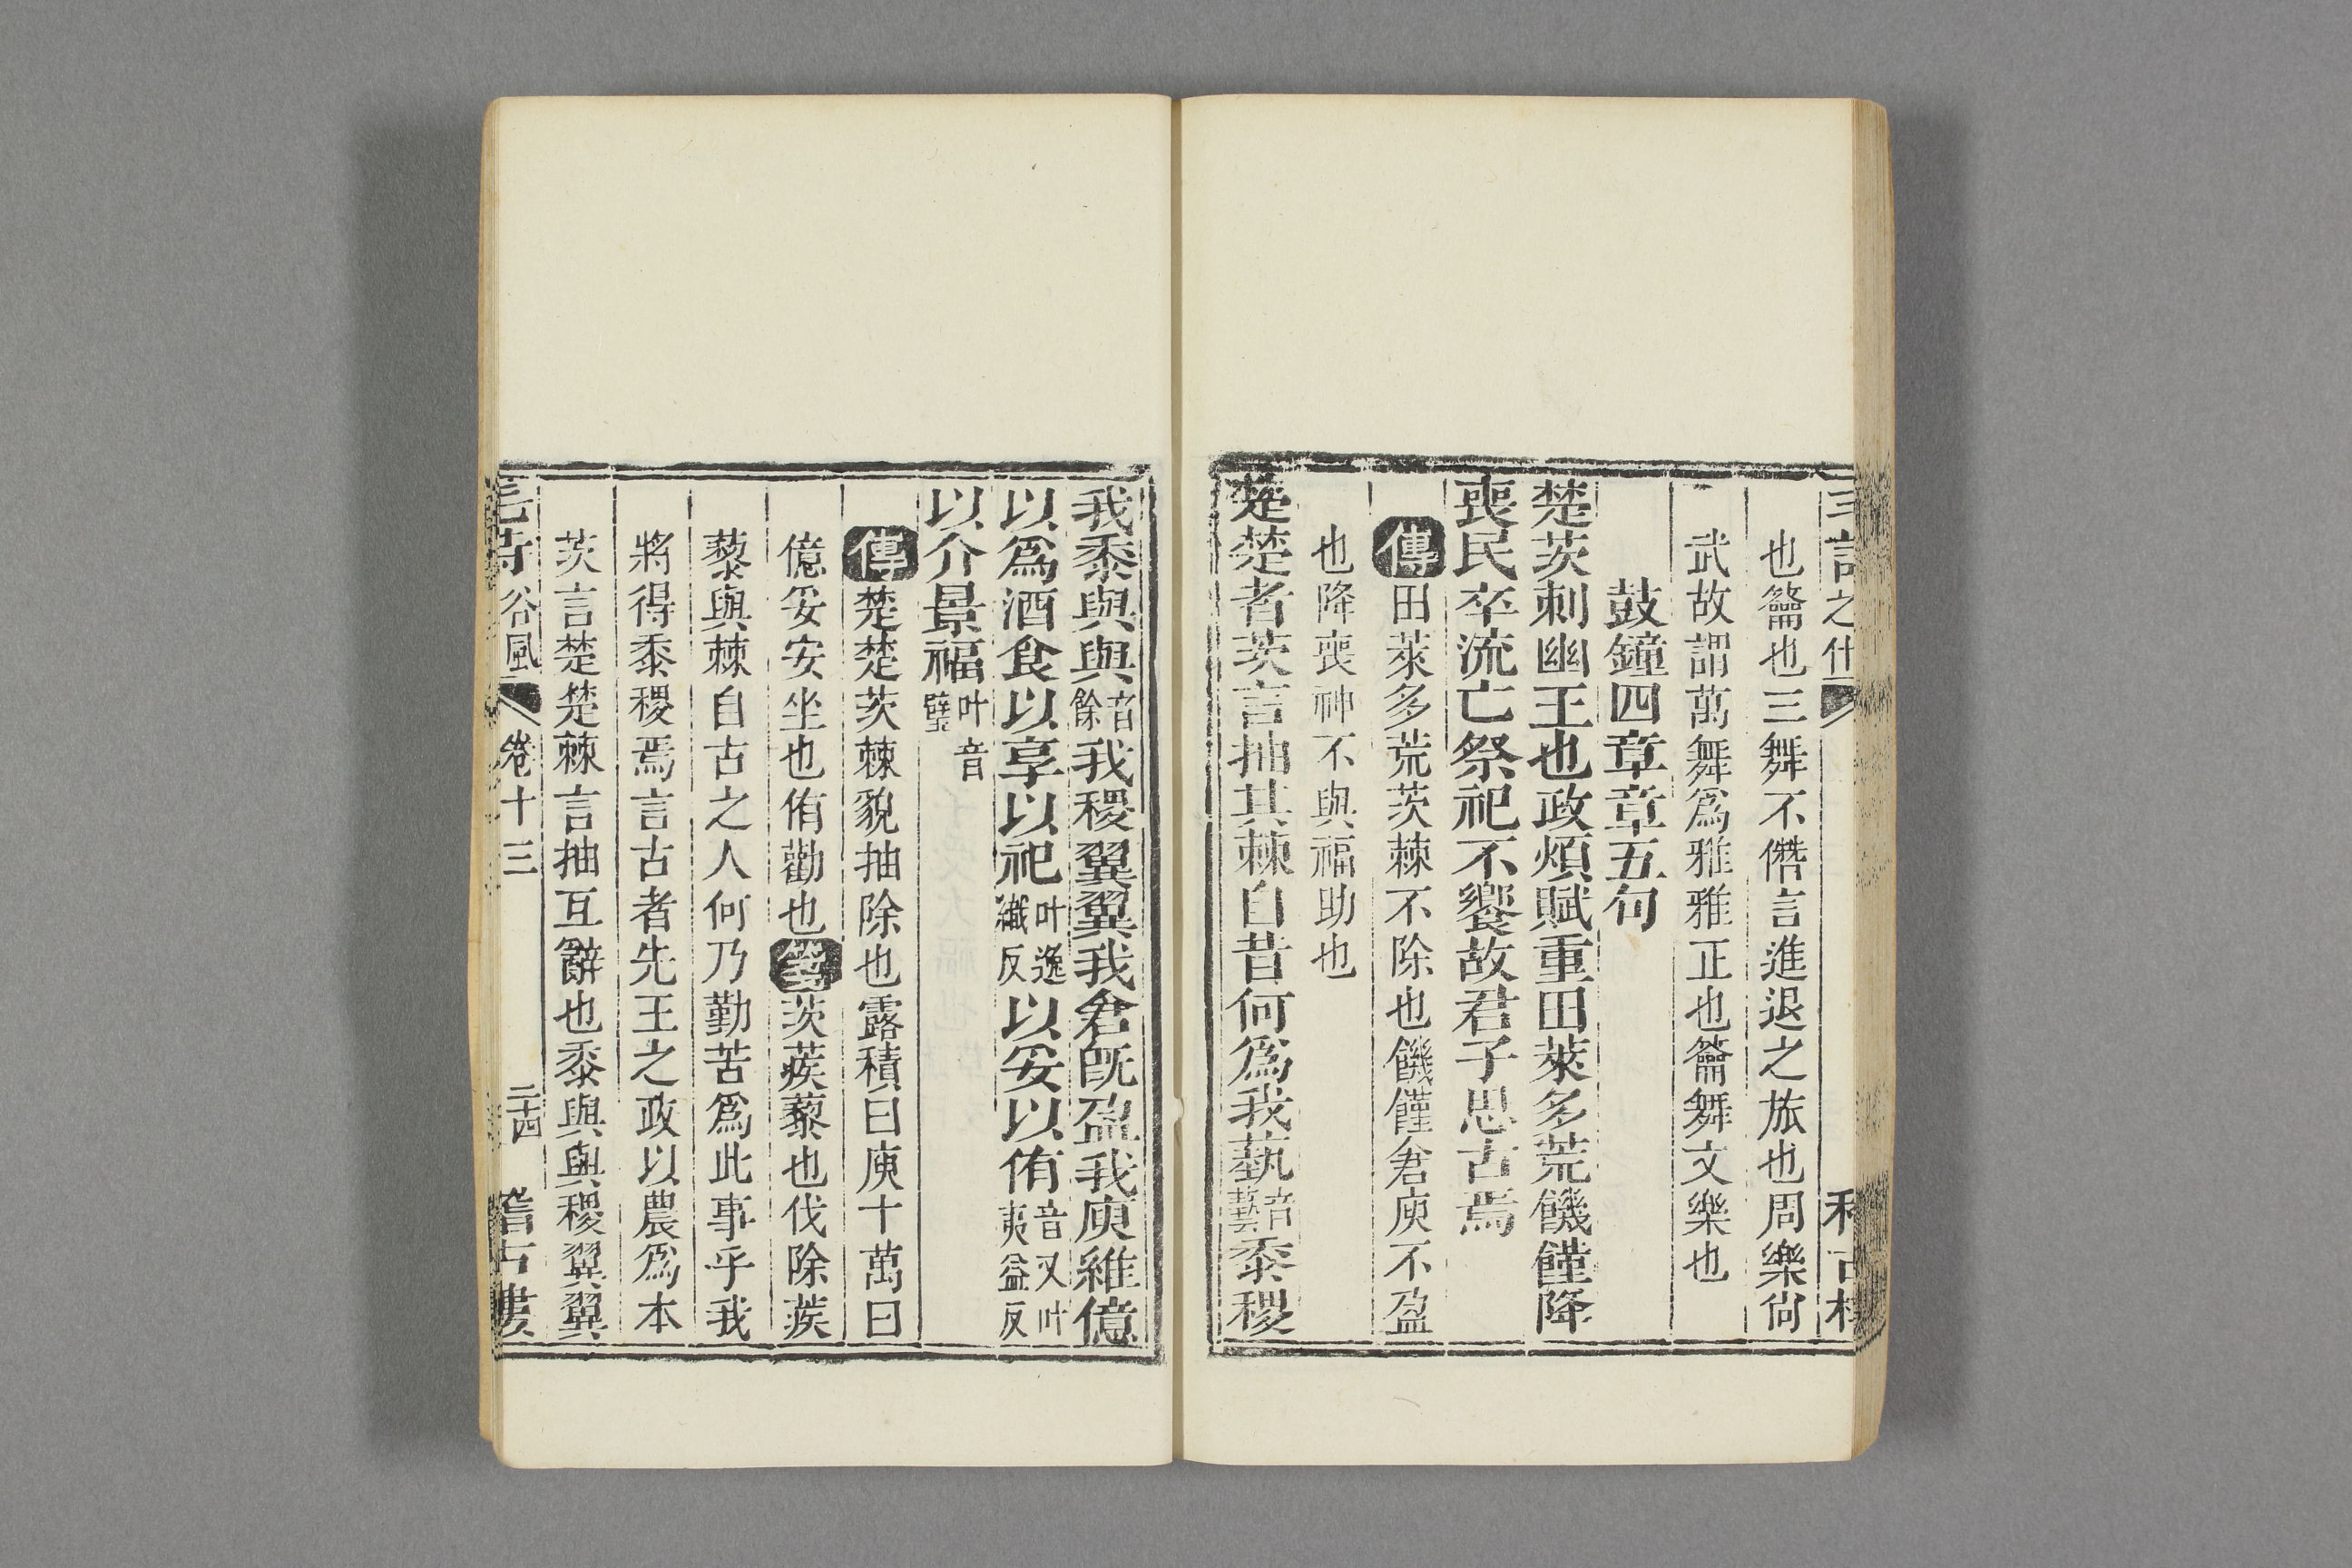 也籥也三舞不僭言進退之旅也周樂尙
武故謂萬舞爲雅雅正也籥舞文樂也
鼓鐘四章章五句
楚茨刺幽王也政煩賦重田萊多荒饑饉降
喪民卒流亡祭祀不饗故君子思古焉
傳田萊多荒茨棘不除也饑饉倉庾不盈
也降喪神不與福助也
楚楚者茨言抽其棘自昔何爲我蓺音藝黍稷
我黍與與音餘我稷翼翼我倉旣盈我庾維億
以爲酒食以享以祀叶逸織反以妥以侑音又叶夷益反
以介景福叶音璧
傳楚楚茨棘貌抽除也露積曰庾十萬曰
億妥安坐也侑勸也箋茨蒺藜也伐除蒺
藜與棘自古之人何乃勤苦爲此事乎我
將得黍稷焉言古者先王之政以農爲本
茨言楚楚棘言抽互辭也黍與與稷翼翼
毛詩谷風 卷十三 二十四 稽古樓